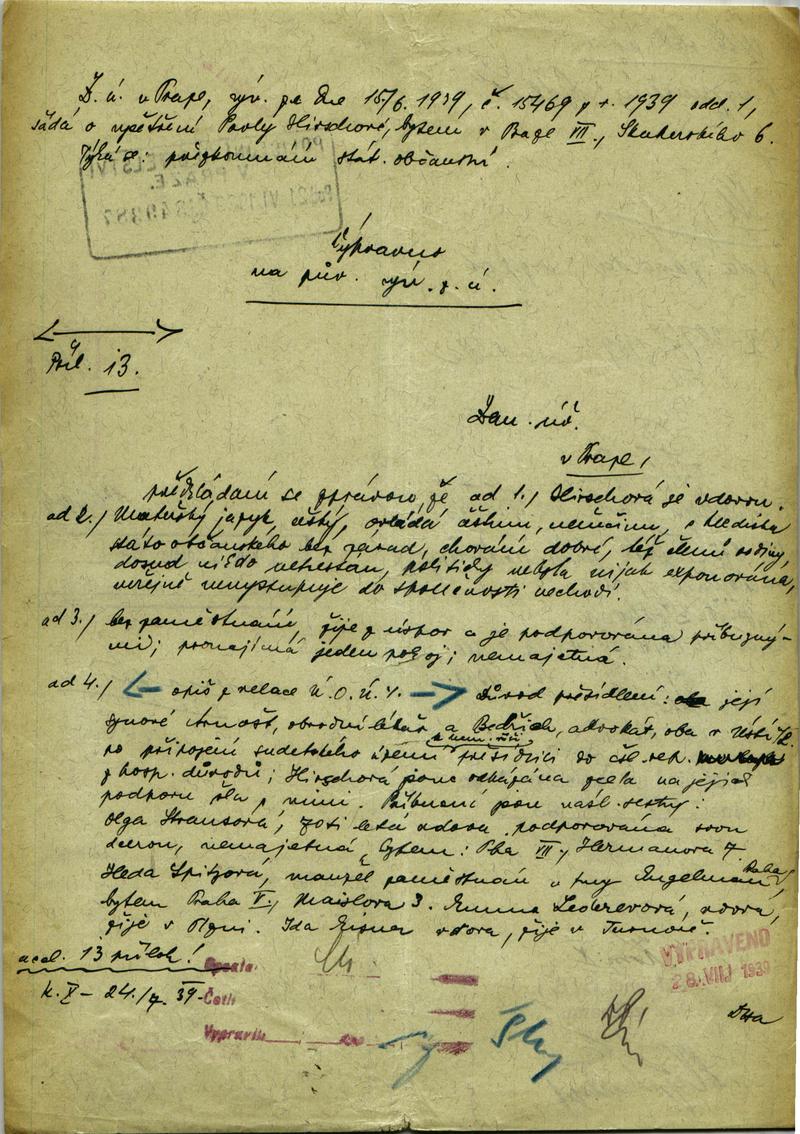 Z. ú. v Praze, výn. ze dne 15/6. 1939, č. 15469 z r. 1939 odd. 1,
žádá o vyšetření Pavly Hirschové, bytem v Praze VII., Skuherského 6.
Týká se: přezkoumání stát. občanství.
Výpravno
na pův. výn. z. ú.
Příl. 13.
Zem. úř.
v Praze,
předkládám se zprávou, že ad 1./ Hirschová je vdovou.
ad 2./ Mateřský jazyk, český, ovládá češtinu, němčinu, s hlediska
státoobčanského bez závad, chování dobré, též členů rodiny,
dosud nikdo netrestán, politicky nebyla nijak exponována,
veřejně nevystupuje do společnosti nechodí.
ad 3./ bez zaměstnání, žije z úspor a je podporována příbuzný-
mi; pronajímá jeden pokoj; nemajetná.
ad 4./ opiš z relace Ú. O. Ú. V. Důvod přesídlení: její
synové Arnošt, obvodní lékař a Bedřich, advokát, oba v Ústí n/L.
po připojení sudetského území k něm. říši přesídlili do čsl. rep.
z hosp. důvodů; Hirschová jsouc odkázána zcela na jejich
podporu šla s nimi. Příbuzní jsou násl. sestry:
Olga Strausová, 70ti letá vdova podporována svou
dcerou, nemajetná, bytem: Pha VII., Heřmanova 7
Heda Spitzová, manžel zaměstnán u fmy Engelmann, Praha
bytem Praha V., Maislova 3. Emma vdova,
žije v Plzni. Ida Eisner vdova, žije v Turnově.
acel. 13 příloh!
K. X – 24./7. 39
Opsala
Četli
Vypravil
VYPRAVENO
28. VII 1939